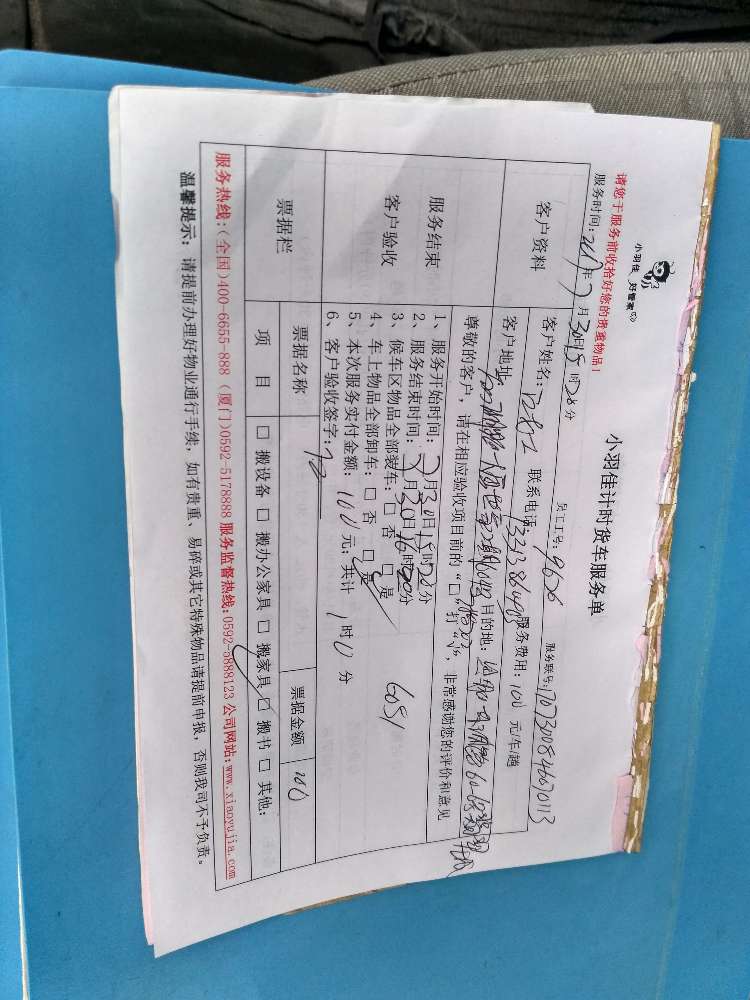 小羽佳 好管家
小羽佳计时货车服务单
请您于服务前收拾好您的贵重物品!
员工工号: 9626 服务联号: 1707300846670113
服务时间: 2017年7月30日15时28分
客户资料
客户姓名: 联系电话:
服务费用: 100 元/车/趟
客户地址:
目的地:
尊敬的客户,请在相应验收项目前的“□”打“√”,非常感谢您的评价和意见
服务结束
客户验收
1、服务开始时间: 7月30日15时22分
2、服务结束时间: 7月30日16时22分
3、候车区物品全部装车: □ 否 □ 是
4、车上物品全部卸车: □ 否 □ 是
5、本次服务实付金额: 100 元; 共计 1 时 0 分
6、客户验收签字:
6051
票据栏
票据名称 票据金额 100
项 目 □ 搬设备 □ 搬办公家具 □ 搬家具 □ 搬书 □ 其他:
服务热线:(全国)400-6655-888 (厦门)0592-5178888 服务监督热线:0592-5888123 公司网站:www.xiaoyujia.com
温馨提示: 请提前办理好物业通行手续,如有贵重、易碎或其它特殊物品请提前申报,否则我司不予负责。